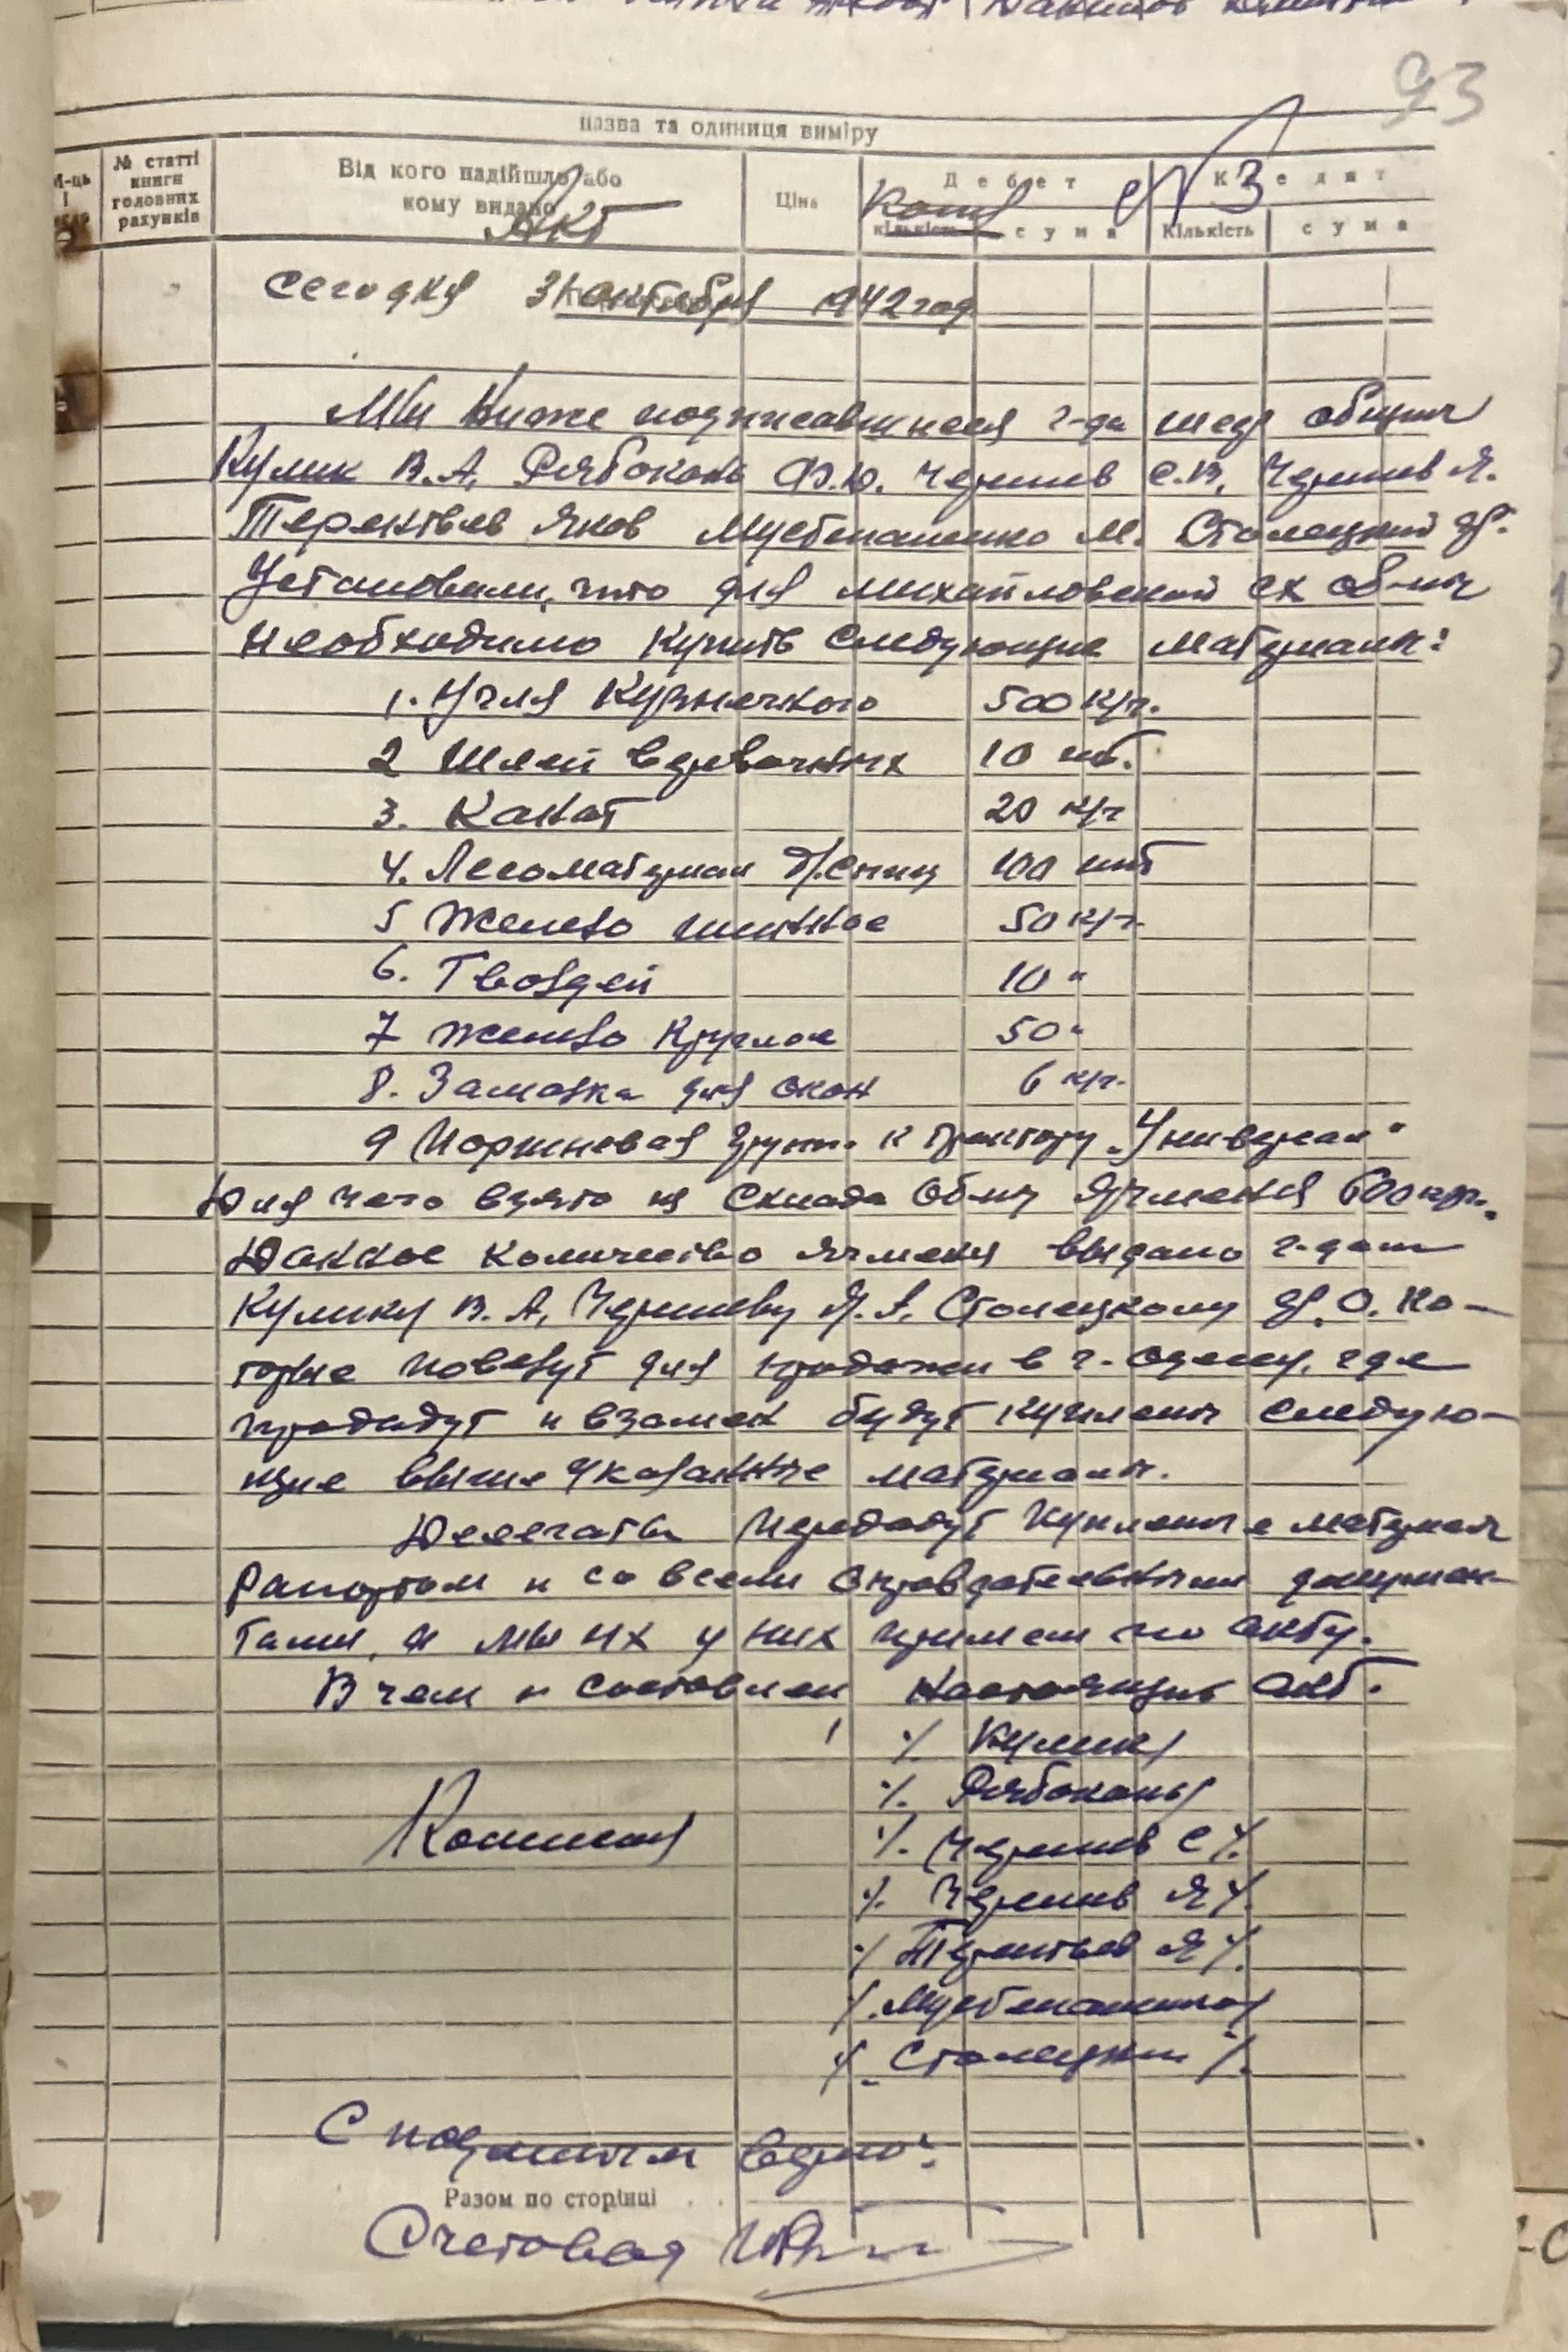 93
назва та одиниця виміру
М-ць і
№ статті книги головних рахунків
Від кого надійшло або кому видано
Ціна
Дебет
Кредит
кількість
сума
Кількість
сума
Акт
Копия
№ 3
Сегодня 31 октября 1942 год
Мы Ниже подписавшиеся г-да общины
Кулик В.А. Рябоконь Ф.Ю. Черниев С.В. Черниев Я.
Терентьев Яков М. Столецкий
Установили, что для михайловской сх об-ны
необходимо Купить Следующие Материалы:
1. Угля Кузнечного 500 кгр.
2 Шлей веревочных 10 шт.
3. Канат 20 кгр
4. Лесоматериал д/спиц 100 шт
5 Железо шинное 50 кгр.
6. Гвоздей 10 "
7 Железо Круглое 50 "
8. Замазка для окон 6 кгр.
9 Поршневая групп. к трактору „Универсал"
Для чего взято из Склада Общ. Ячменя 600 кгр.
Данное Количество ячменя выдано г-дам
Кулику В.А, Черниеву Я. Столецкому О. Ко-
торые повезут для продажи в г. Одессу, где
продадут и взамен будут куплены следую-
щие выше указанные материалы.
Делегаты передадут Купленые материал
Рапортом и со всеми оправдательными докумен-
тами, а мы их у них примем по акту.
В чем и составлен настоящий акт.
% Кулик/
%. Рябоконь/
%. Черниев С %.
%. Черниев Я %.
% Терентьев Я %.
% Столецкий %.
С подлинным верно:
Разом по сторінці
Счетовод